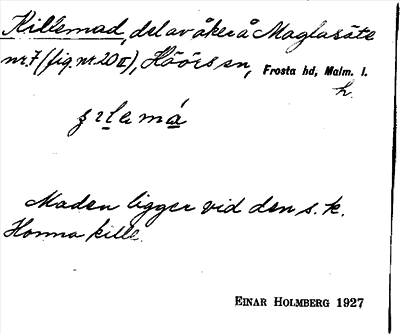 Killemad, del av åker å Maglasäte
nr. 7 (fig. nr. 20 II), Höörs sn, Frosta hd, Malm. l.
h.
Maden ligger vid den s. k.
Homma kille.
EINAR HOLMBERG 1927